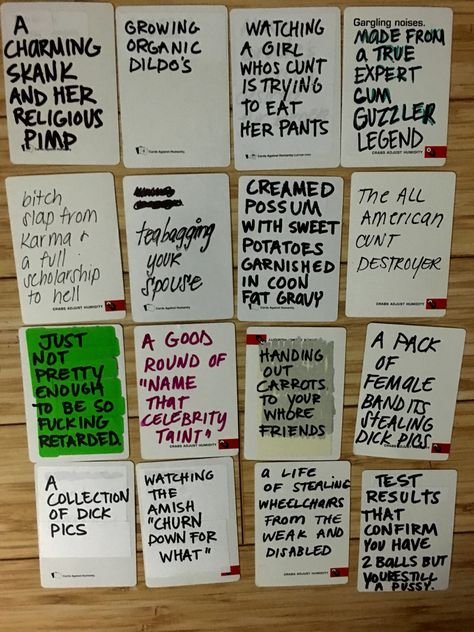 A
CHARMING
SKANK
AND HER
RELIGIOUS
PIMP
GROWING
ORGANIC
DILDO'S
Cards Against Humanity
WATCHING
A GIRL
WHOS CUNT
IS TRYING
TO EAT
HER PANTS
Cards Against Humanity
Gargling noises.
MADE FROM
A TRUE
EXPERT
CUM
GUZZLER
LEGEND
CRABS ADJUST HUMIDITY
bitch
slap from
Karma &
a full
scholarship
to hell
CRABS ADJUST HUMIDITY
teabagging
your
spouse
Cards Against Humanity
CREAMED
POSSUM
WITH SWEET
POTATOES
GARNISHED
IN COON
FAT GRAVY
The All
American
CUNT
DESTROYER
CRABS ADJUST HUMIDITY
JUST
NOT
PRETTY
ENOUGH
TO BE SO
FUCKING
RETARDED.
A GOOD
ROUND OF
"NAME
THAT
CELEBRITY
TAINT"
CRABS ADJUST HUMIDITY
HANDING
OUT
CARROTS
TO YOUR
WHORE
FRIENDS
A PACK
OF
FEMALE
BANDITS
STEALING
DICK PICS.
CRABS ADJUST HUMIDITY
A
COLLECTION
OF DICK
PICS
Cards Against Humanity
WATCHING
THE
AMISH
"CHURN
DOWN FOR
WHAT"
CRABS ADJUST HUMIDITY
a LIFE
OF STEALING
WHEELCHAIRS
FROM THE
WEAK AND
DISABLED
CRABS ADJUST HUMIDITY
TEST
RESULTS
THAT
CONFIRM
YOU HAVE
2 BALLS BUT
YOURE STILL
A PUSSY.